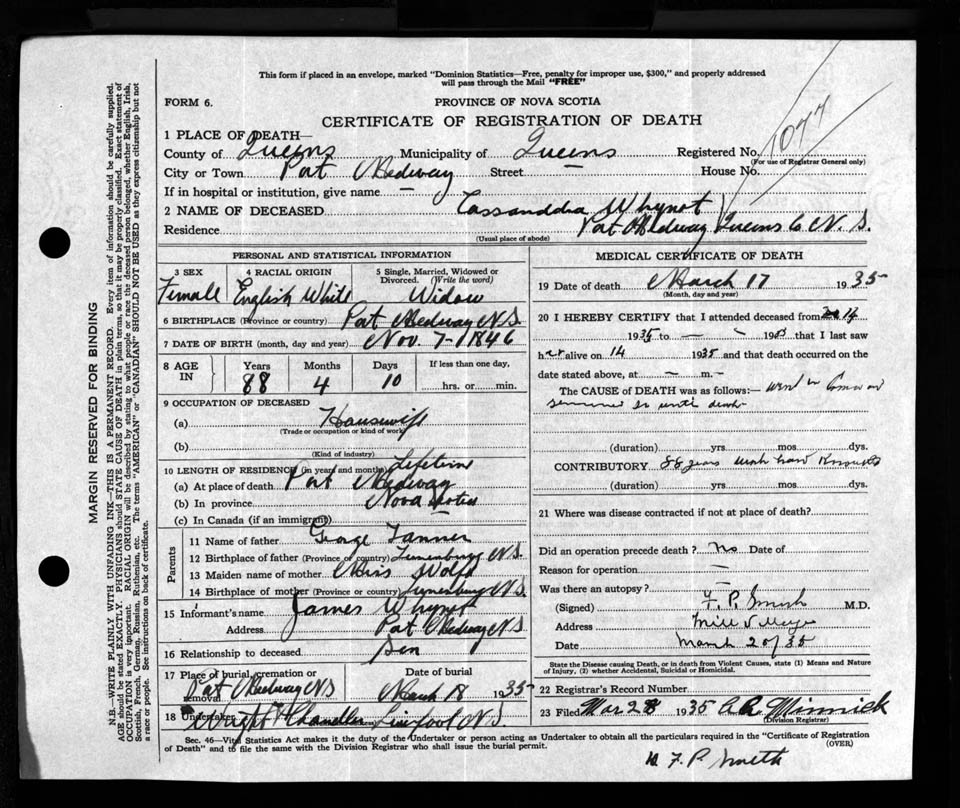 This form if placed in an envelope, marked "Dominion Statistics—Free, penalty for improper use, $300," and properly addressed
will pass through the Mail "FREE"
FORM 6.
PROVINCE OF NOVA SCOTIA
CERTIFICATE OF REGISTRATION OF DEATH
1077
1 PLACE OF DEATH—
County of Queens Municipality of Queens Registered No.
(For use of Registrar General only)
City or Town Port Medway Street — House No.
If in hospital or institution, give name —
2 NAME OF DECEASED Cassandra Whynot
Residence Port Medway Queens Co N. S.
(Usual place of abode)
PERSONAL AND STATISTICAL INFORMATION
3 SEX 4 RACIAL ORIGIN 5 Single, Married, Widowed or Divorced. (Write the word)
Female English White Widow
6 BIRTHPLACE (Province or country) Port Medway N.S.
7 DATE OF BIRTH (month, day and year) Nov. 7 - 1846
8 AGE IN Years Months Days If less than one day,
88 4 10 hrs. or min.
9 OCCUPATION OF DECEASED
(a) Housewife
(Trade or occupation or kind of work)
(b)
(Kind of industry)
10 LENGTH OF RESIDENCE (in years and months) Lifetime
(a) At place of death Port Medway
(b) In province Nova Scotia
(c) In Canada (if an immigrant)
Parents
11 Name of father George Tanner
12 Birthplace of father (Province or country) Lunenburg N.S.
13 Maiden name of mother Miss Wolfe
14 Birthplace of mother (Province or country) Lunenburg N.S.
15 Informant's name James Whynot
Address Port Medway N S
16 Relationship to deceased Son
17 Place of burial, cremation or removal Date of burial
Port Medway N S March 18 1935
18 Undertaker Wright & Chandler Liverpool N.S.
MEDICAL CERTIFICATE OF DEATH
19 Date of death March 17 1935
(Month, day and year)
20 I HEREBY CERTIFY that I attended deceased from 14
1935 to — 19 that I last saw
her alive on 14 1935 and that death occurred on the
date stated above, at — m.
The CAUSE OF DEATH was as follows:— went in coma and
remained so until death
(duration) yrs. mos. dys.
CONTRIBUTORY 88 years
(duration) yrs. mos. dys.
21 Where was disease contracted if not at place of death?
Did an operation precede death ? No Date of
Reason for operation —
Was there an autopsy? —
(Signed) F. P. Smith M.D.
Address Mill Village
Date March 20/35
State the Disease causing Death, or in death from Violent Causes, state (1) Means and Nature
of Injury, (2) whether Accidental, Suicidal or Homicidal.
22 Registrar's Record Number
23 Filed Mar 28 1935 Minnick
(Division Registrar)
Sec. 46—Vital Statistics Act makes it the duty of the Undertaker or person acting as Undertaker to obtain all the particulars required in the "Certificate of Registration
of Death" and to file the same with the Division Registrar who shall issue the burial permit.
(OVER)
F. P. Smith
MARGIN RESERVED FOR BINDING
N.B.—WRITE PLAINLY WITH UNFADING INK—THIS IS A PERMANENT RECORD. Every item of information should be carefully supplied.
AGE should be stated EXACTLY. PHYSICIANS should STATE CAUSE OF DEATH in plain terms, so that it may be properly classified. Exact statement of
OCCUPATION is very important. RACIAL ORIGIN will be described by stating to what people or race the deceased person belonged, whether English, Irish,
Scottish, French, German, Russian, Ruthenian, etc. The terms "AMERICAN" or "CANADIAN" SHOULD NOT BE USED as they express citizenship but not
a race or people. See instructions on back of certificate.